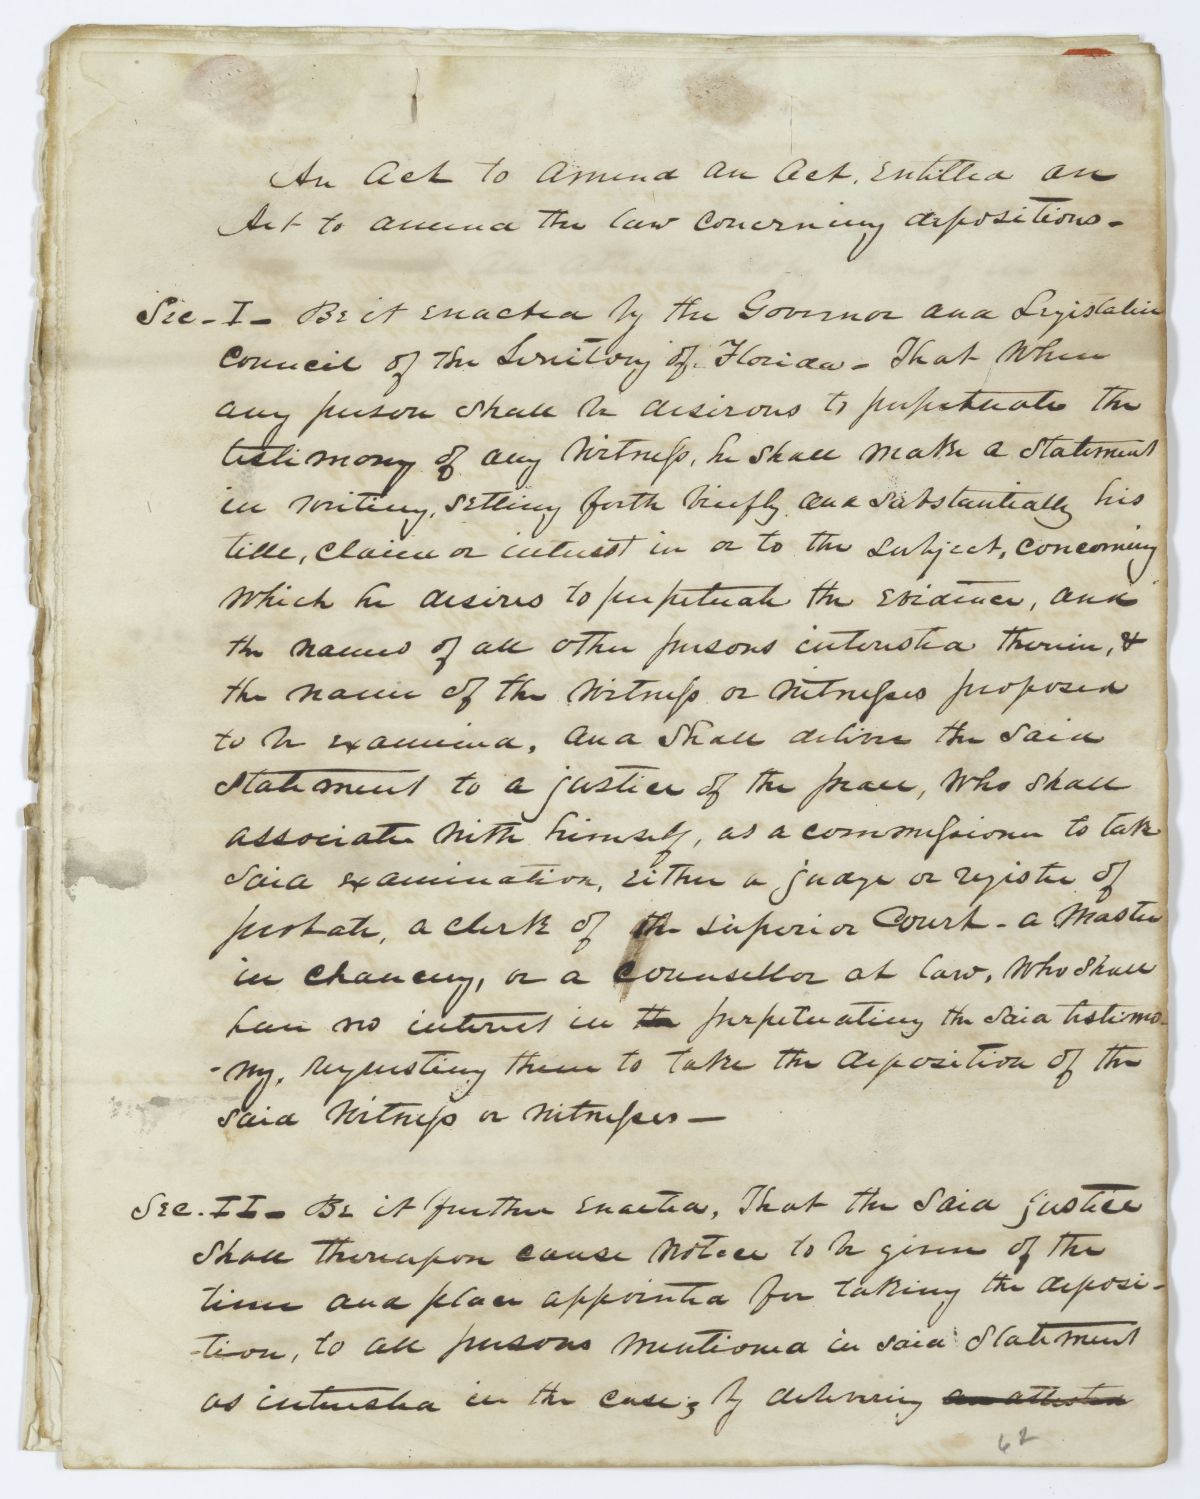 An Act to Amend an Act, Entitled an
Act to amend the law Concerning depositions-
Sec- I- Be it Enacted by the Governor and Legislative
Council of the Territory of Florida- That When
any person Shall be desirous to perpetuate the
testimony of any Witness, he Shall make a Statement
in Writing, Setting forth briefly and Substantially his
title, Claim or interest in or to the Subject, Concerning
Which he desires to perpetuate the Evidence, and
the names of all other persons interested therein, &
the name of the Witness or Witnesses proposed
to be examined, and Shall deliver the Said
Statement to a justice of the peace, Who Shall
associate With himself, as a commissioner to take
Said examination, Either a judge or register of
probate, a clerk of the Superior Court- a Master
in Chancery, or a Counsellor at law, Who Shall
have no interest in the perpetuating the Said testimo-
-ny, requesting them to take the deposition of the
Said Witness or Witnesses-
Sec. II- Be it further Enacted, That the Said justice
Shall thereupon cause Notice to be given of the
time and place appointed for taking the deposi-
-tion, to all persons Mentioned in Said Statement
as interested in the case; by delivering an attested
62